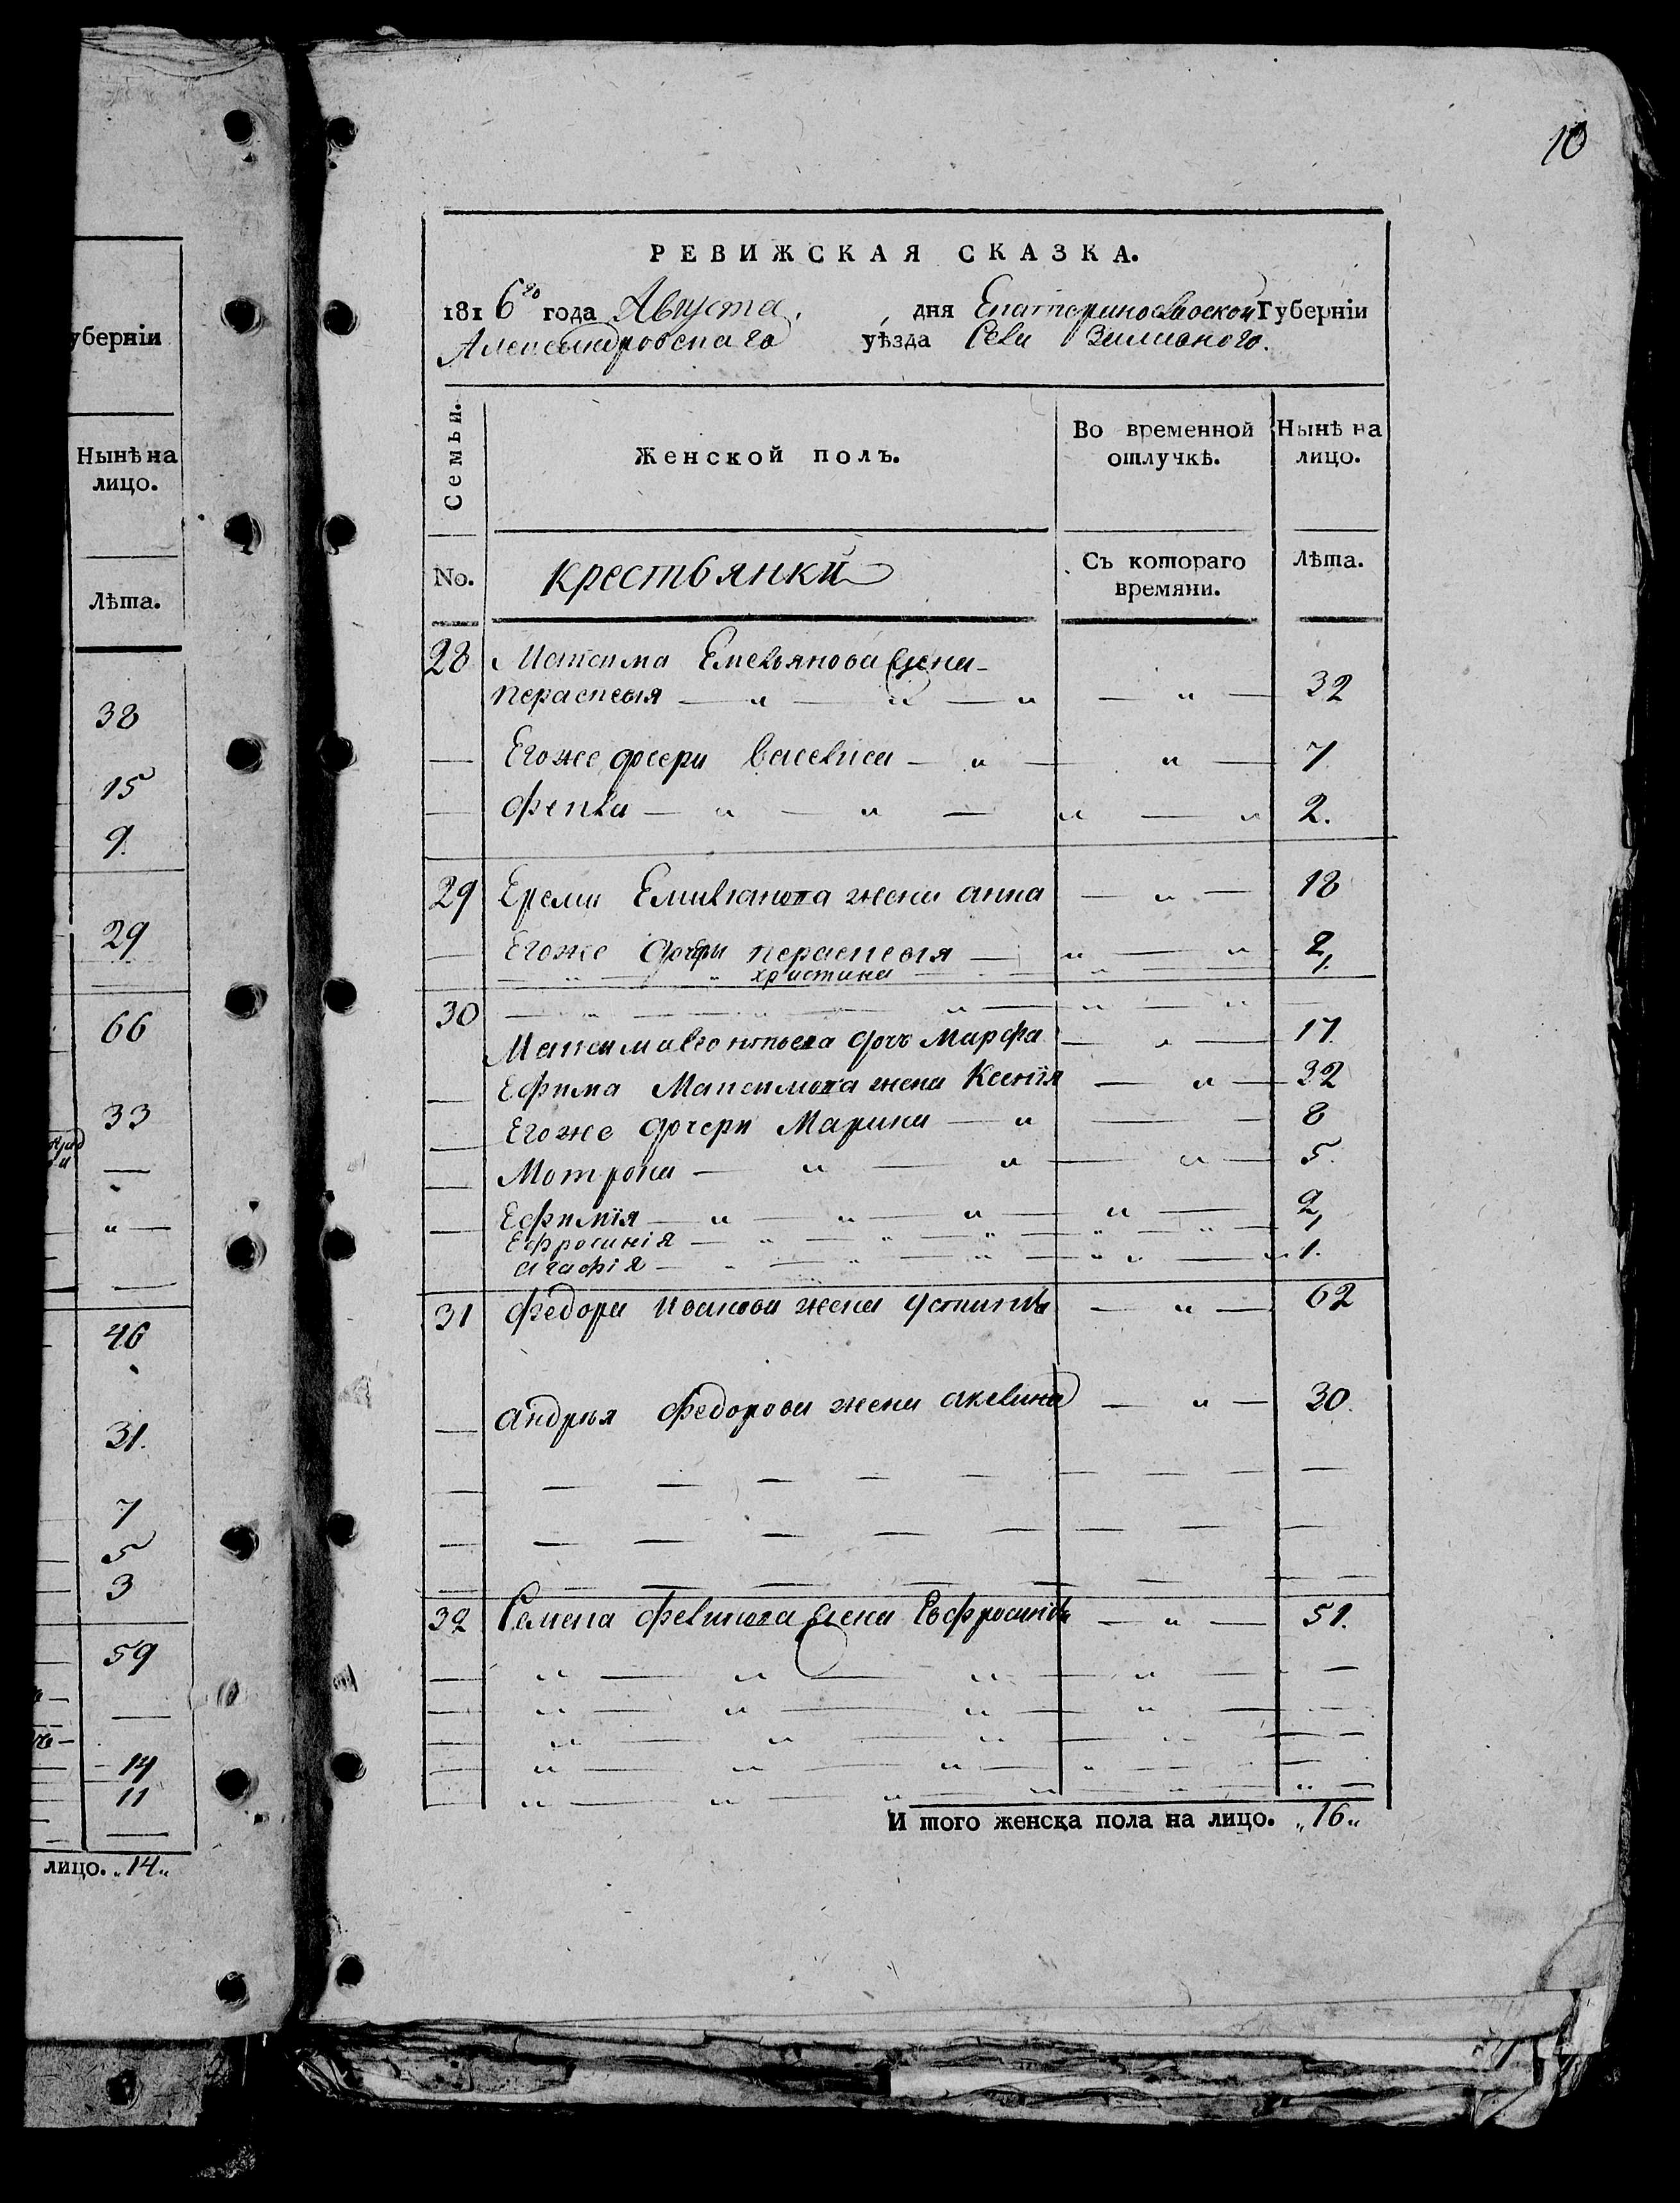 10
РЕВИЖСКАЯ СКАЗКА.
1816го года Августа, дня Екатеринославской Губерніи
Александровскаго уѣзда Села
уберніи
Нынѣ на
лицо.
Лѣта.
38
15
9.
29
66
33
46
31.
7
5
3
59
14
11
лицо. „14„
Семьи.
Женской полъ.
Во временной
отлучкѣ.
Нынѣ на
лицо.
No.
крестьянки
Съ котораго
времяни.
Лѣта.
28 Максима Емельянова жена
параскевия — „ — „ — „ — „ — 32
— Егоже дочери василиса — „ — „ — 7
— Фекла — „ — „ — „ — „ 2.
29 Еремы Емилианова жена анна — „ — 18
— Егоже дочери параскевия — „ — „ 2,
— „ — „ христина — „ — 1.
30 — „ — „ — „ — „ — „ —
Максима леонтьева дочь Марфа — „ — 17.
— Ефима Максимова жена Ксенїя — „ — 32
— Егоже дочери Марина — „ — 8
— Мотрона — „ — „ — „ — 5
— Ефимїя — „ — „ — „ — „ — 2,
Ефросинія — „ — „ — „ — „ — „ — 1
агафія — „ — „ — „ — „ „ — „ 1.
31 Федора Иванова жена устинья — „ — 62
— андрея Федорова жена акелина — „ — 30.
32 Семена жена Ефросинья — „ — 51.
И того женска пола на лицо. „16„